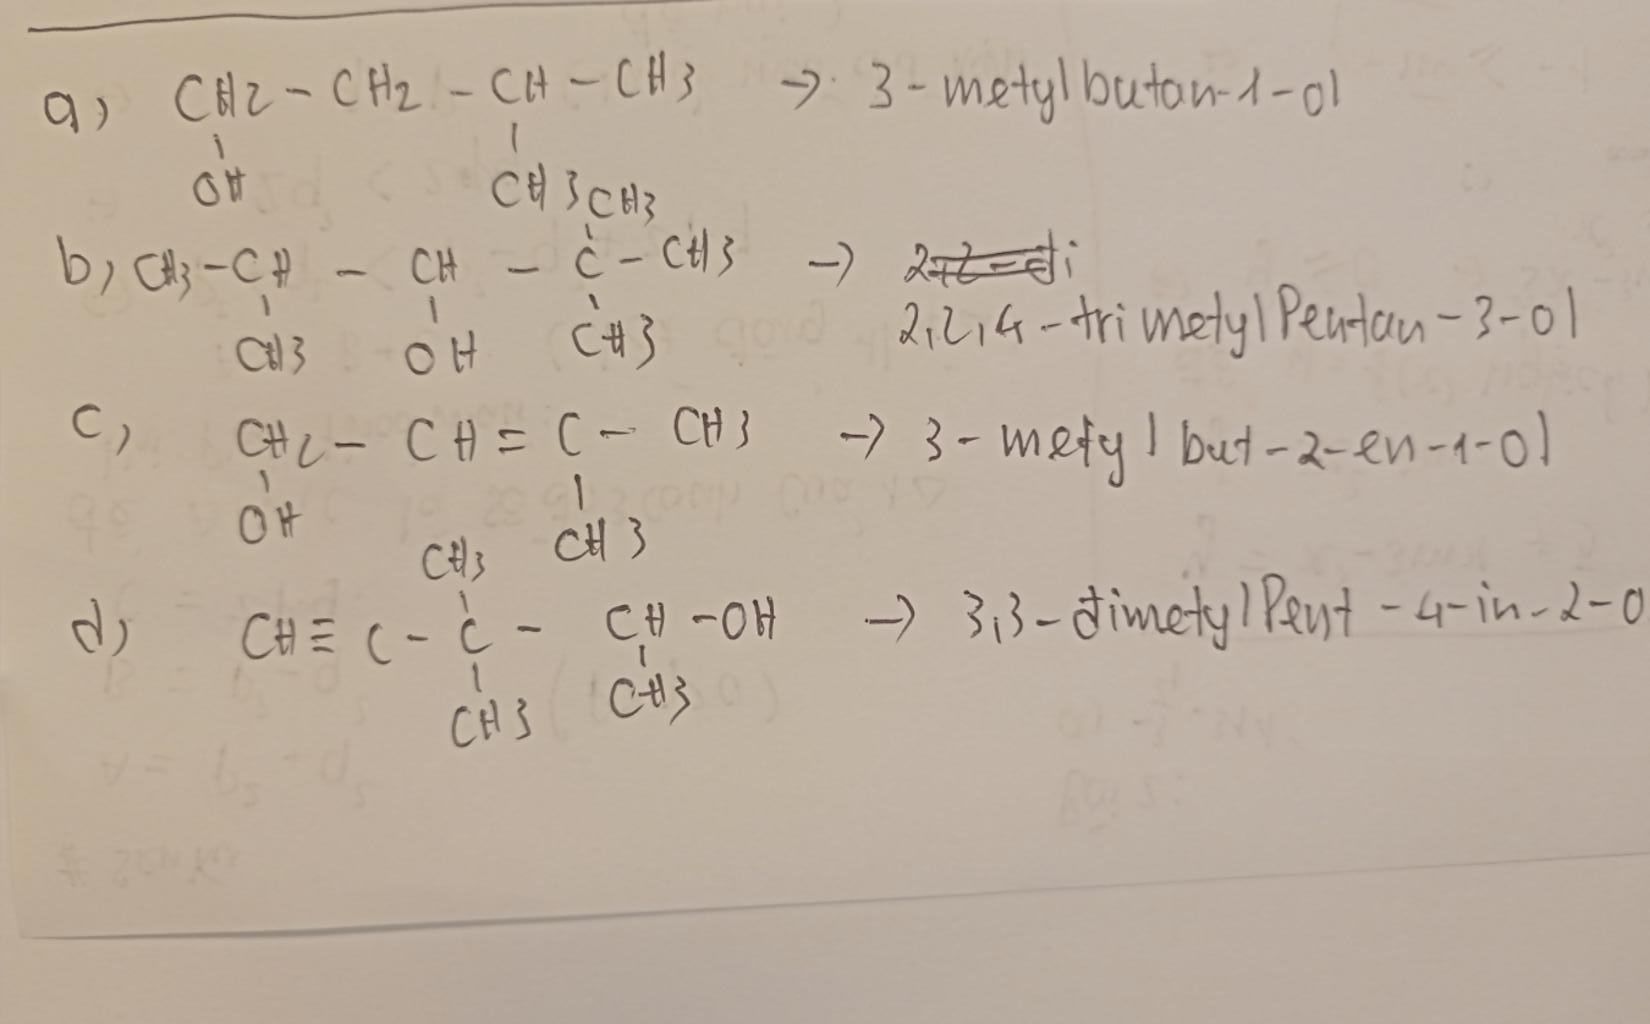 CH2 - CH2 - CH - CH3 → 3 - metyl butan-1-ol
a)
OH CH3
CH3
b) CH3 - CH - CH - C - CH3 →
CH3 OH CH3
2,2,4 - tri metyl Pentan - 3 - ol
c) CH2 - CH = C - CH3 → 3 - metyl but - 2 - en - 1 - ol
OH CH3
CH3
d) CH ≡ C - C - CH - OH → 3,3 - dimetyl Pent - 4 - in - 2 - o
CH3 CH3